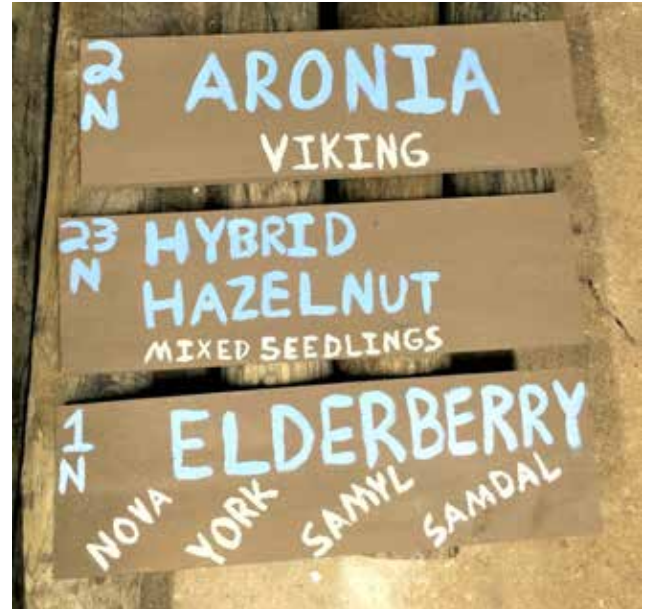 2 N ARONIA
VIKING
23 N HYBRID
HAZELNUT
MIXED SEEDLINGS
1 N ELDERBERRY
NOVA YORK SAMYL SAMDAL